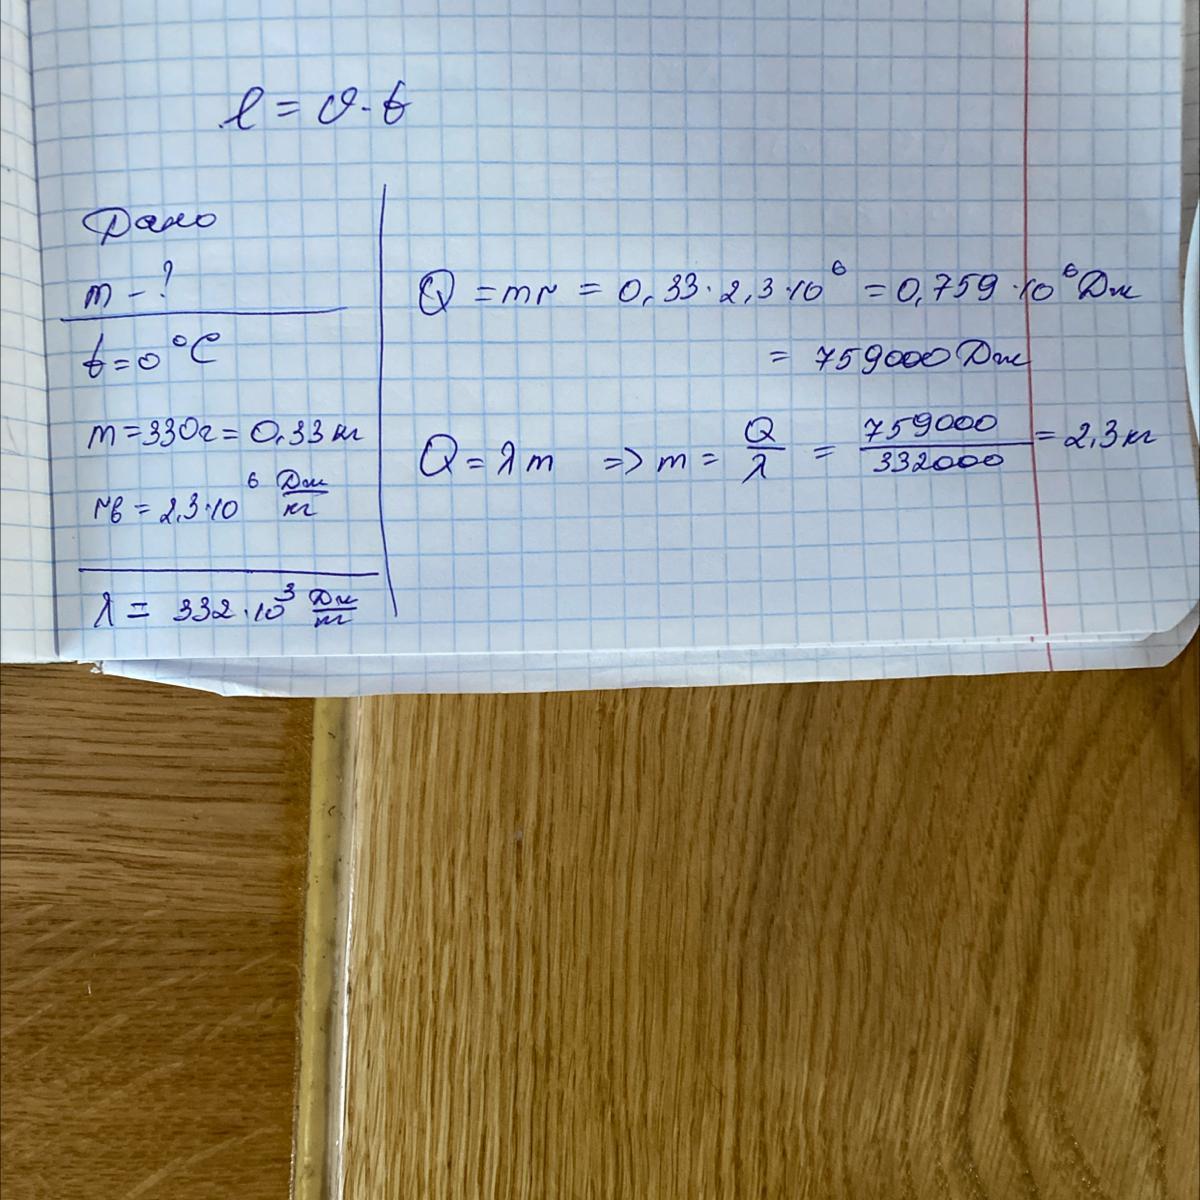 l = v·t
Дано
m – ?
t = 0 °C
m = 330г = 0,33 кг
rв = 2,3·10⁶ Дж/кг
λ = 332·10³ Дж/кг
Q = mr = 0,33·2,3·10⁶ = 0,759·10⁶ Дж
= 759000 Дж
Q = λm => m = Q/λ = 759000/332000 = 2,3 кг